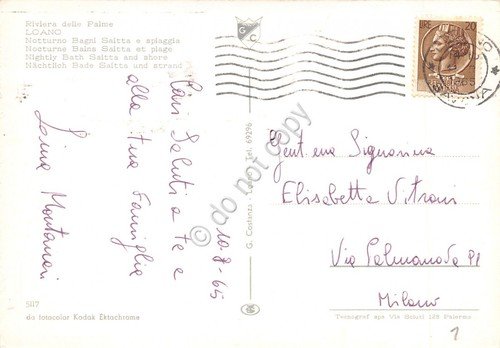 Riviera delle Palme
LOANO
Notturno Bagni Saitta e spiaggia
Nocturne Bains Saitta et plage
Nightly Bath Saitta and shore
Nächtlich Bade Saitta und strand
G C
LIRE 20
Cari Saluti a te e
alla tua famiglia
Montanari
10-8-65
G. Costanza - Loano - Tel. 69296
do not copy
Gent.ma Signorina
Elisabetta Vitrani
Via Palmanova
Milano
5117
da fotocolor Kodak Ektachrome
Tecnograf spa Via Saluti 128 Palermo
1